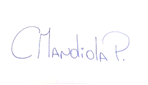 CMandiola P.